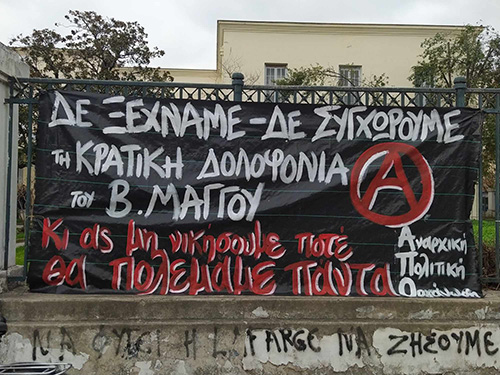 ΔΕ ΞΕΧΝΑΜΕ - ΔΕ ΣΥΓΧΩΡΟΥΜΕ
τη ΚΡΑΤΙΚΗ ΔΟΛΟΦΟΝΙΑ
του Β. ΜΑΓΓΟΥ
Κι ας μη νικήσουμε ποτέ
θα πολεμαμε παντα
Α
Αναρχική
Πολιτική
ΝΑ ΦΥΓΕΙ Η LAFARGE ΝΑ ΖΗΣΟΥΜΕ